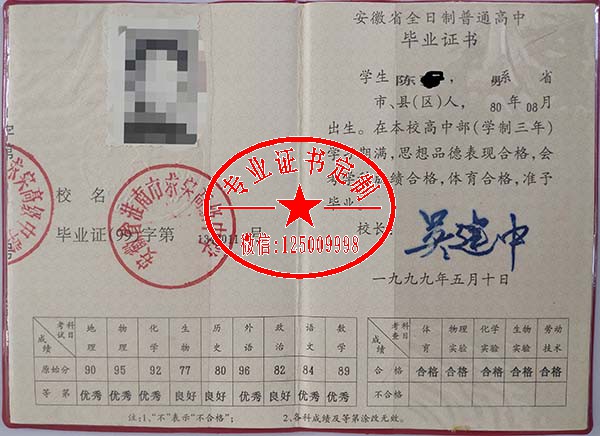 安徽省全日制普通高中
毕业证书
学生 陈 , 系 省
市、县(区)人, 80 年 08 月
出生。在本校高中部(学制三年)
学 期满,思想品德表现合格,会
绩合格,体育合格,准予
毕业
校名
校长: 吴建中
毕业证(99)字第 号
一九九九年五月十日
专业证书定制
微信:125009998
考试科目 成绩 地理 物理 化学 生物 历史 外语 政治 语文 数学
原始分 90 95 92 77 80 96 82 84 89
等第 优秀 优秀 优秀 良好 良好 优秀 良好 优秀 优秀
考查科目 成绩 体育 物理实验 化学实验 生物实验 劳动技术
合格 合格 合格 合格 合格 合格
不合格
注:1、“不”表示“不合格”; 2、各科成绩及等第涂改无效。